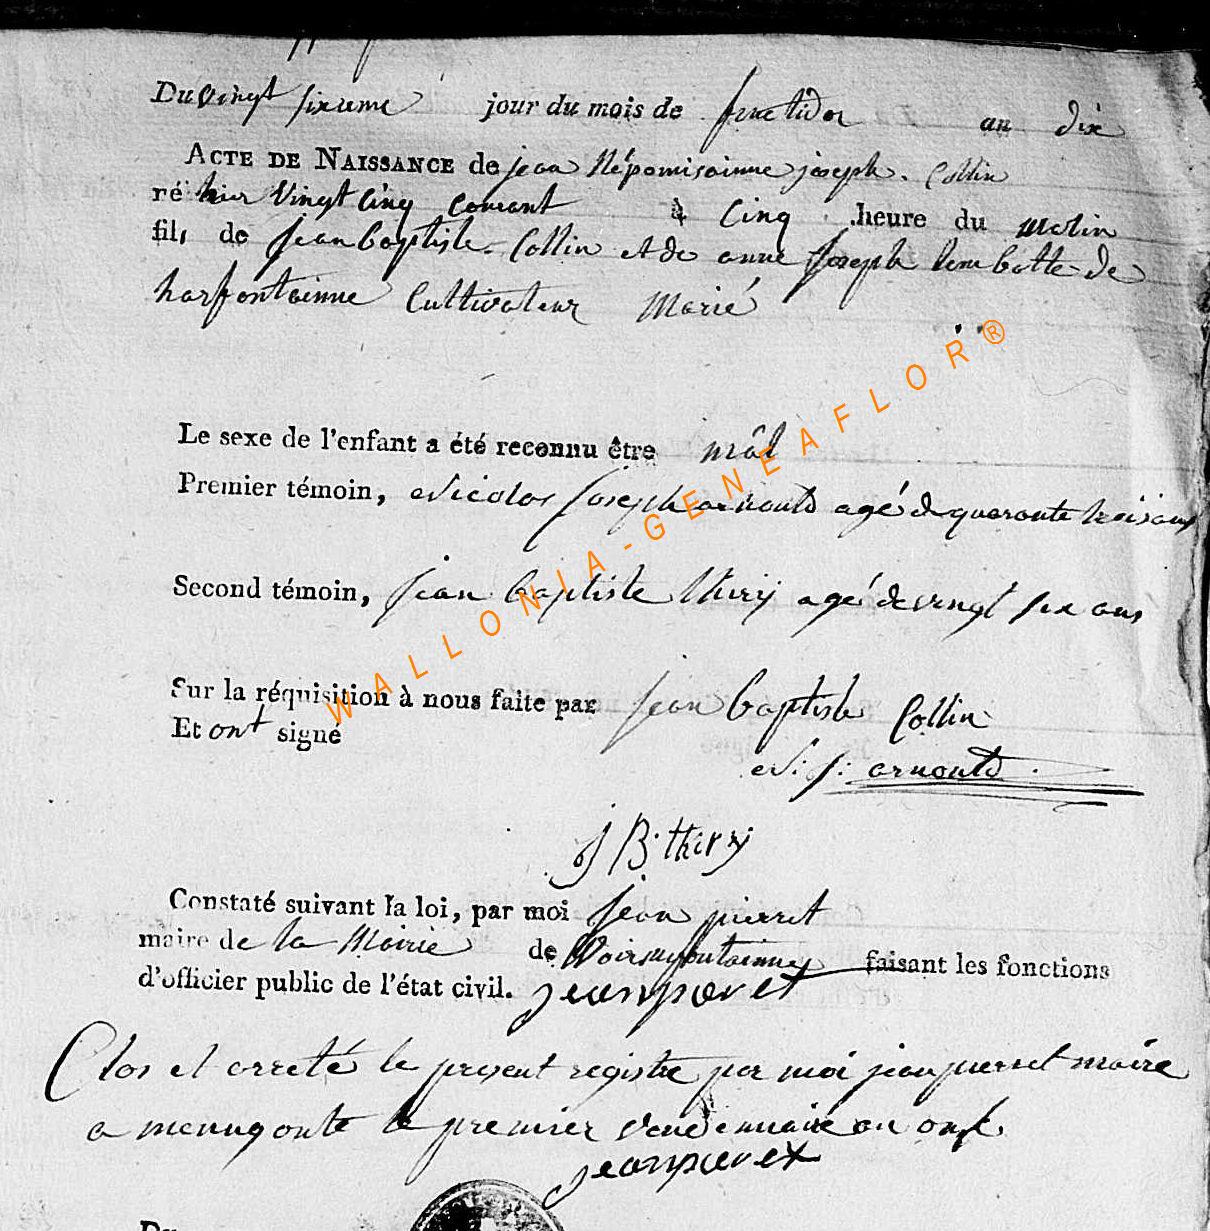 Du vingt sixieme jour du mois de fructidor an dix
ACTE DE NAISSANCE de jean Népomisainne joseph. Collin
né hier vingt cinq courant à cinq heure du matin
fils de jean baptiste Collin et de anne joseph lambotte de
harfontainne Cultivateur Marié
Le sexe de l'enfant a été reconnu être mâl
Premier témoin, Nicolas joseph arnould agé de quarante trois ans
Second témoin, jean baptiste thiry agé de vingt six ans
Sur la réquisition à nous faite par jean baptiste Collin
Et ont signé
N: j: arnould
j B. thiry
Constaté suivant la loi, par moi jean pierret
maire de la Mairie de faisant les fonctions
d'officier public de l'état civil. jean pieret
Clos et arreté le present registre par moi jean pierret maire
a menugoute le premier vendemiaire an onse
jean pieret
Du
WALLONIA-GENEAFLOR®